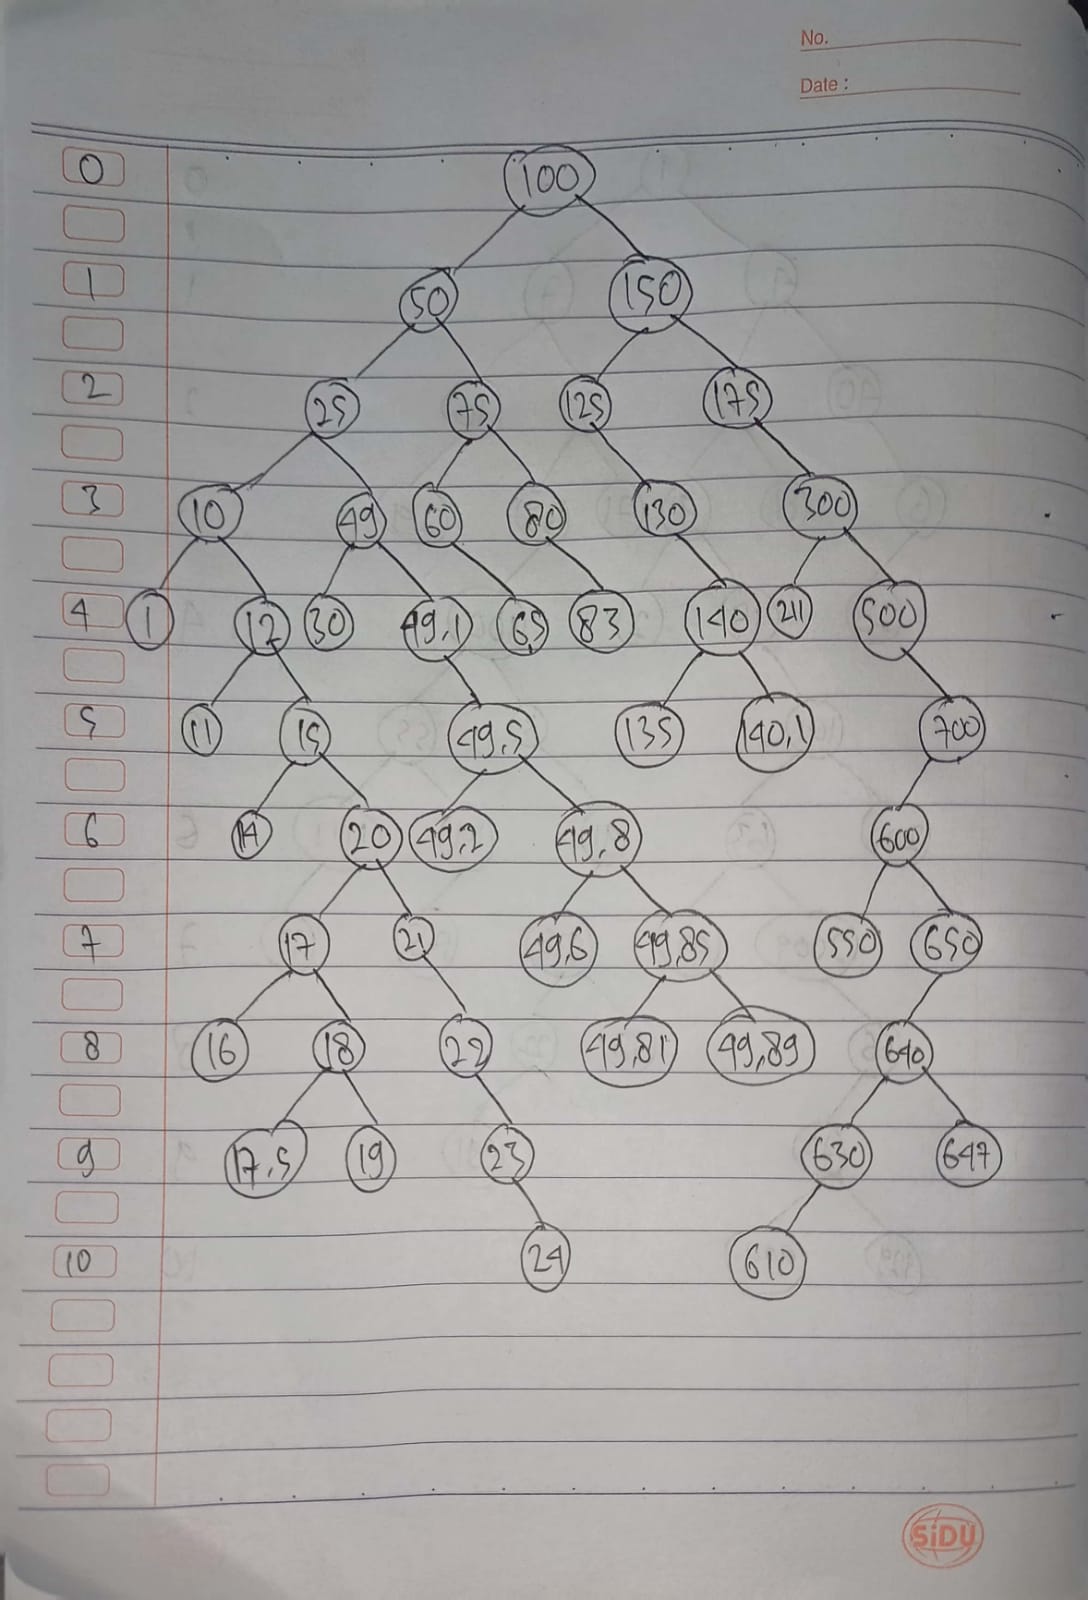 No.
Date :
0 100
1 50 150
2 25 75 125 175
3 10 49 60 80 130 300
4 1 12 30 49,1 65 83 140 211 500
5 11 15 49,5 135 140,1 700
6 14 20 49,2 49,8 600
7 17 21 49,6 49,85 550 650
8 16 18 22 49,81 49,89 640
9 17,5 19 23 630 647
10 24 610
SiDU